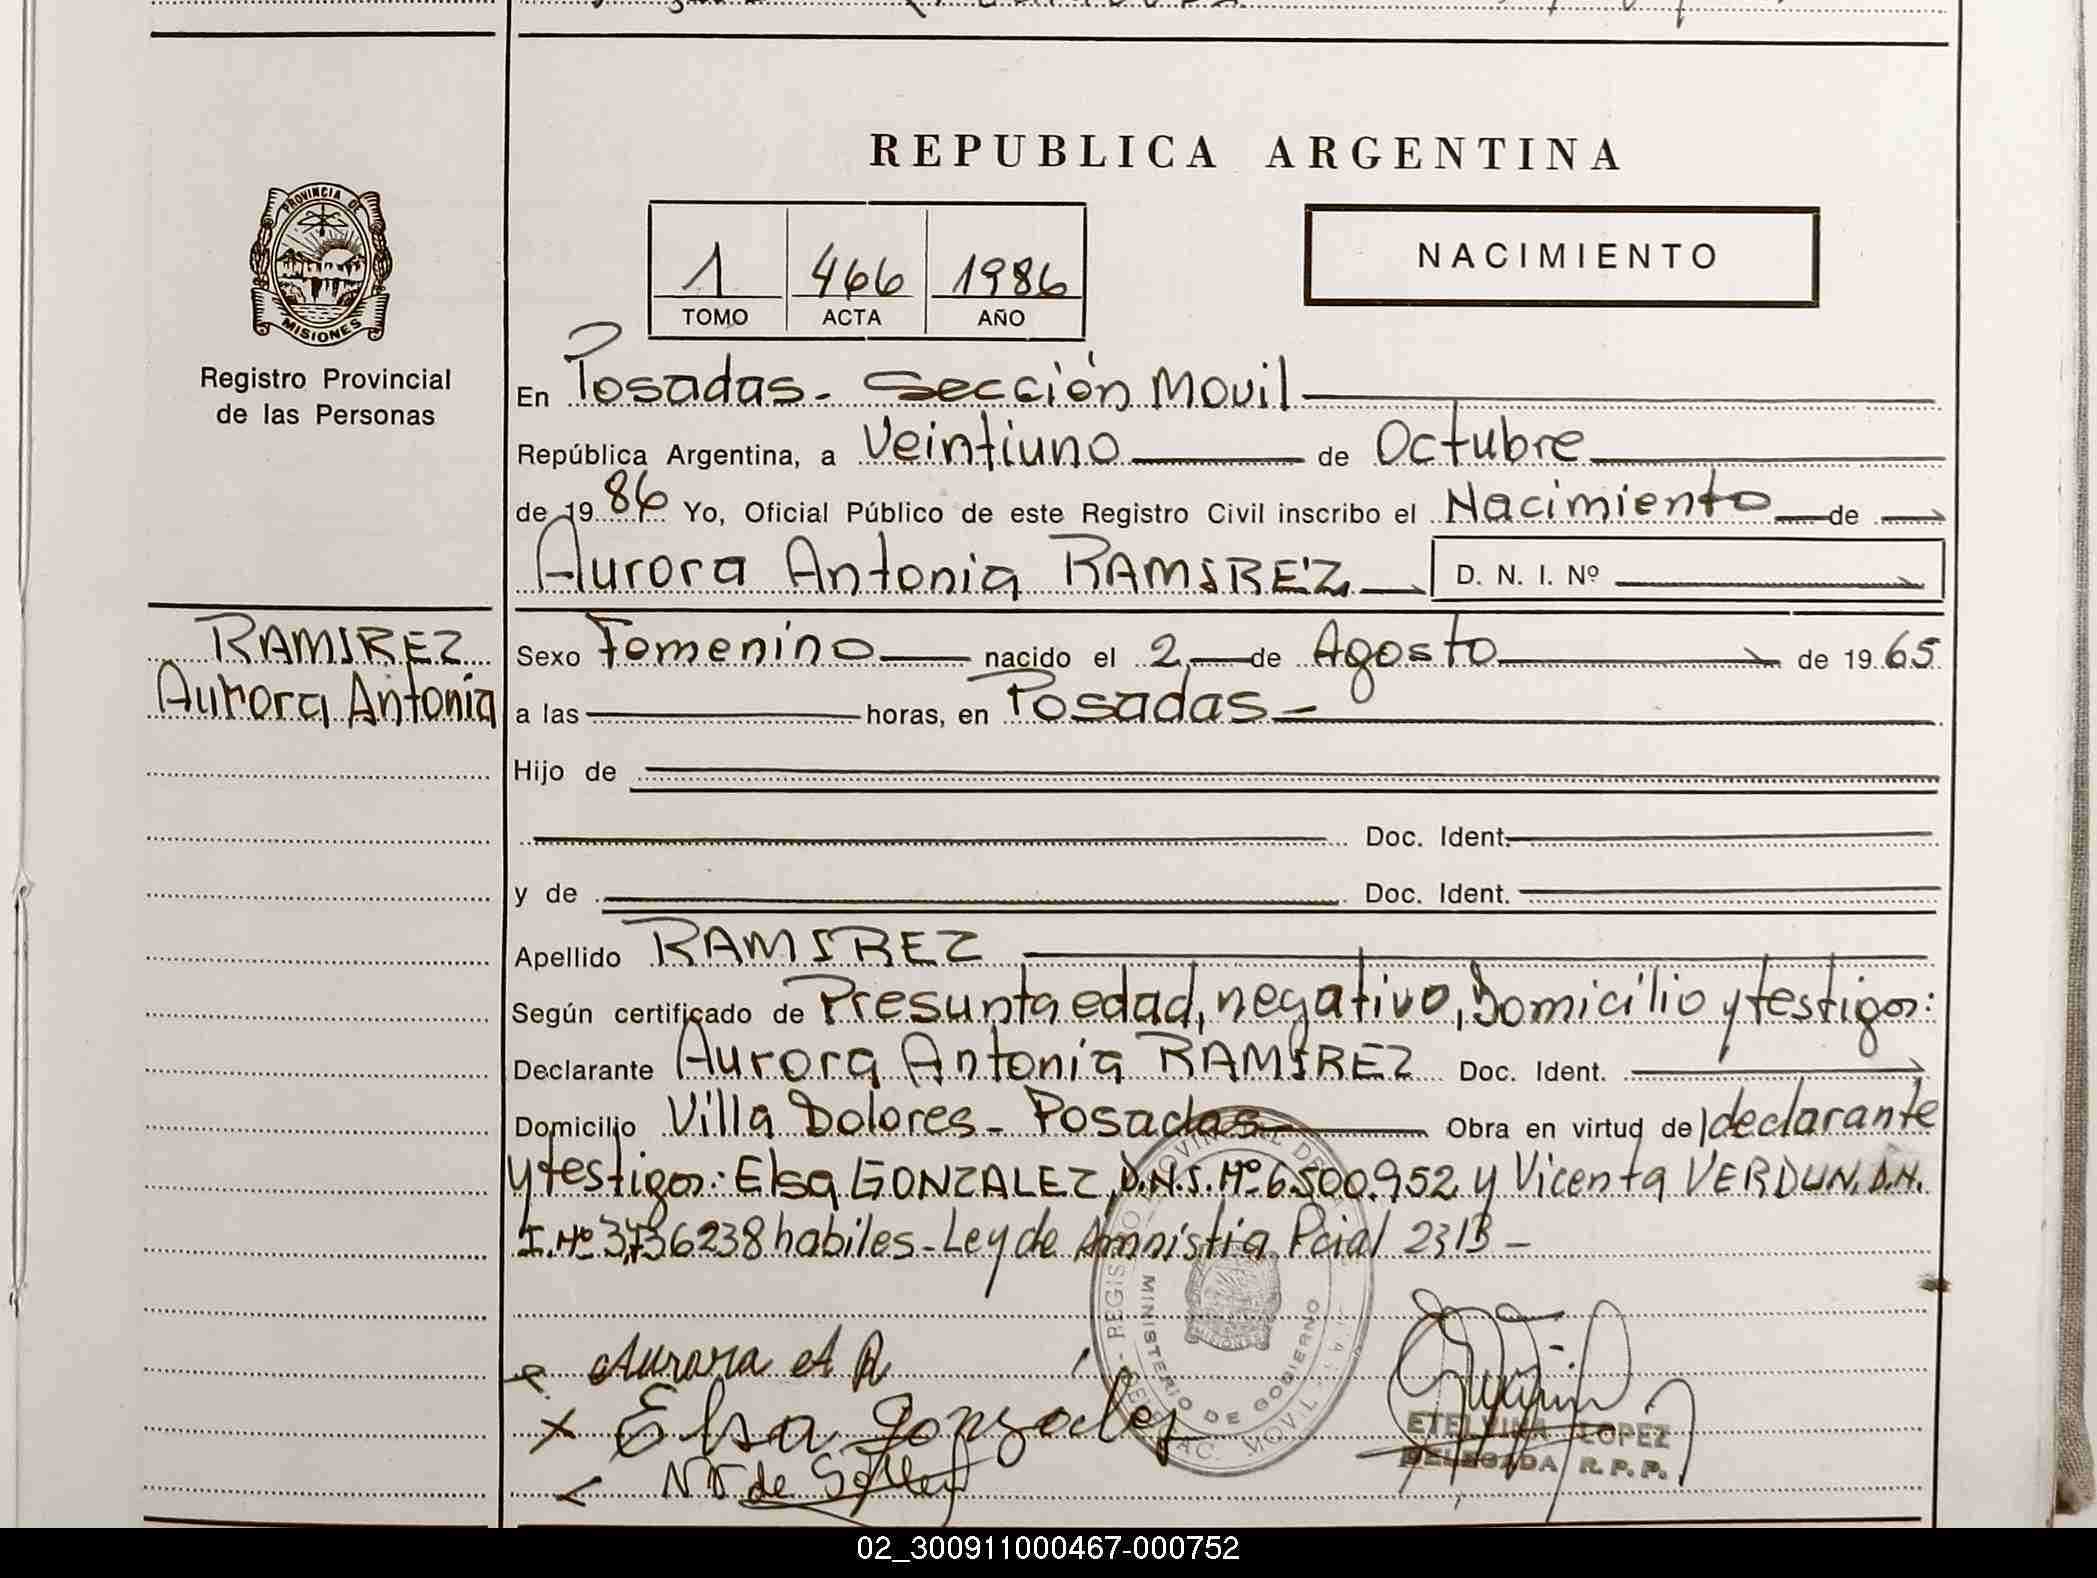 REPUBLICA ARGENTINA
PROVINCIA DE
MISIONES
Registro Provincial
de las Personas
1 466 1986
TOMO ACTA AÑO
NACIMIENTO
En Posadas - Sección Movil
República Argentina, a Veintiuno de Octubre
de 1986 Yo, Oficial Público de este Registro Civil inscribo el Nacimiento de
Aurora Antonia RAMIREZ D. N. I. Nº
RAMIREZ
Aurora Antonia
Sexo Femenino nacido el 2 de Agosto de 1965
a las horas, en Posadas -
Hijo de
Doc. Ident.
y de Doc. Ident.
Apellido RAMIREZ
Según certificado de Presunta edad, negativo, Domicilio y testigos:
Declarante Aurora Antonia RAMIREZ Doc. Ident.
Domicilio Villa Dolores - Posadas Obra en virtud de declarante
y testigos: Elsa GONZALEZ, D.N.I. Nº 6.500.952 y Vicenta VERDUN. D.N.
I. Nº habiles - Ley de Amnistia Pcial 2313 -
MINISTERIO DE GOBIERNO
Aurora A R
Elsa Gonzalez
ETELVINA LOPEZ
DELEGADA R.P.P.
02_300911000467-000752